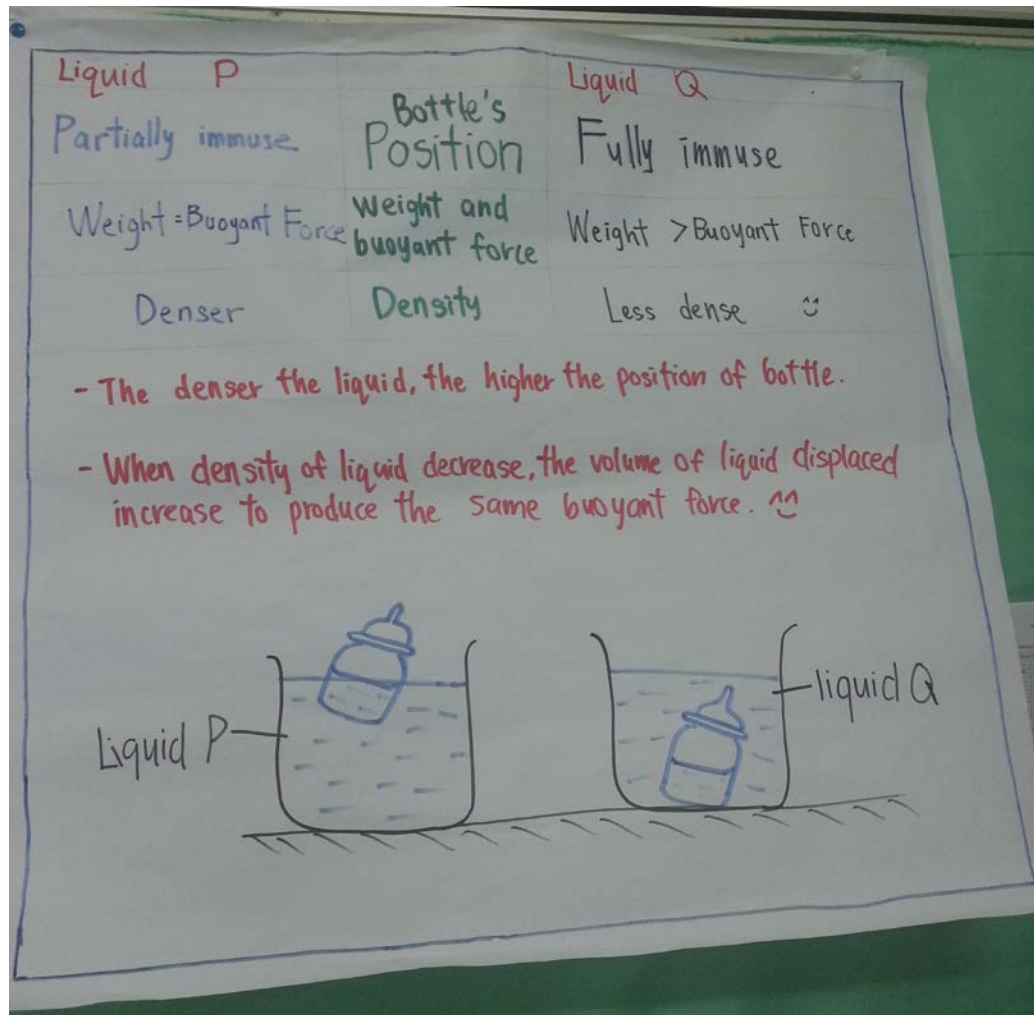 Liquid P
Bottle's
Position
Liquid Q
Partially immuse
Fully immuse
Weight = Buoyant Force
Weight and
buoyant force
Weight > Buoyant Force
Denser
Density
Less dense
- The denser the liquid, the higher the position of bottle.
- When density of liquid decrease, the volume of liquid displaced
increase to produce the same buoyant force.
Liquid P
liquid Q